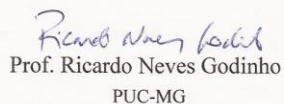 Ricardo Neves Godinho
Prof. Ricardo Neves Godinho
PUC-MG